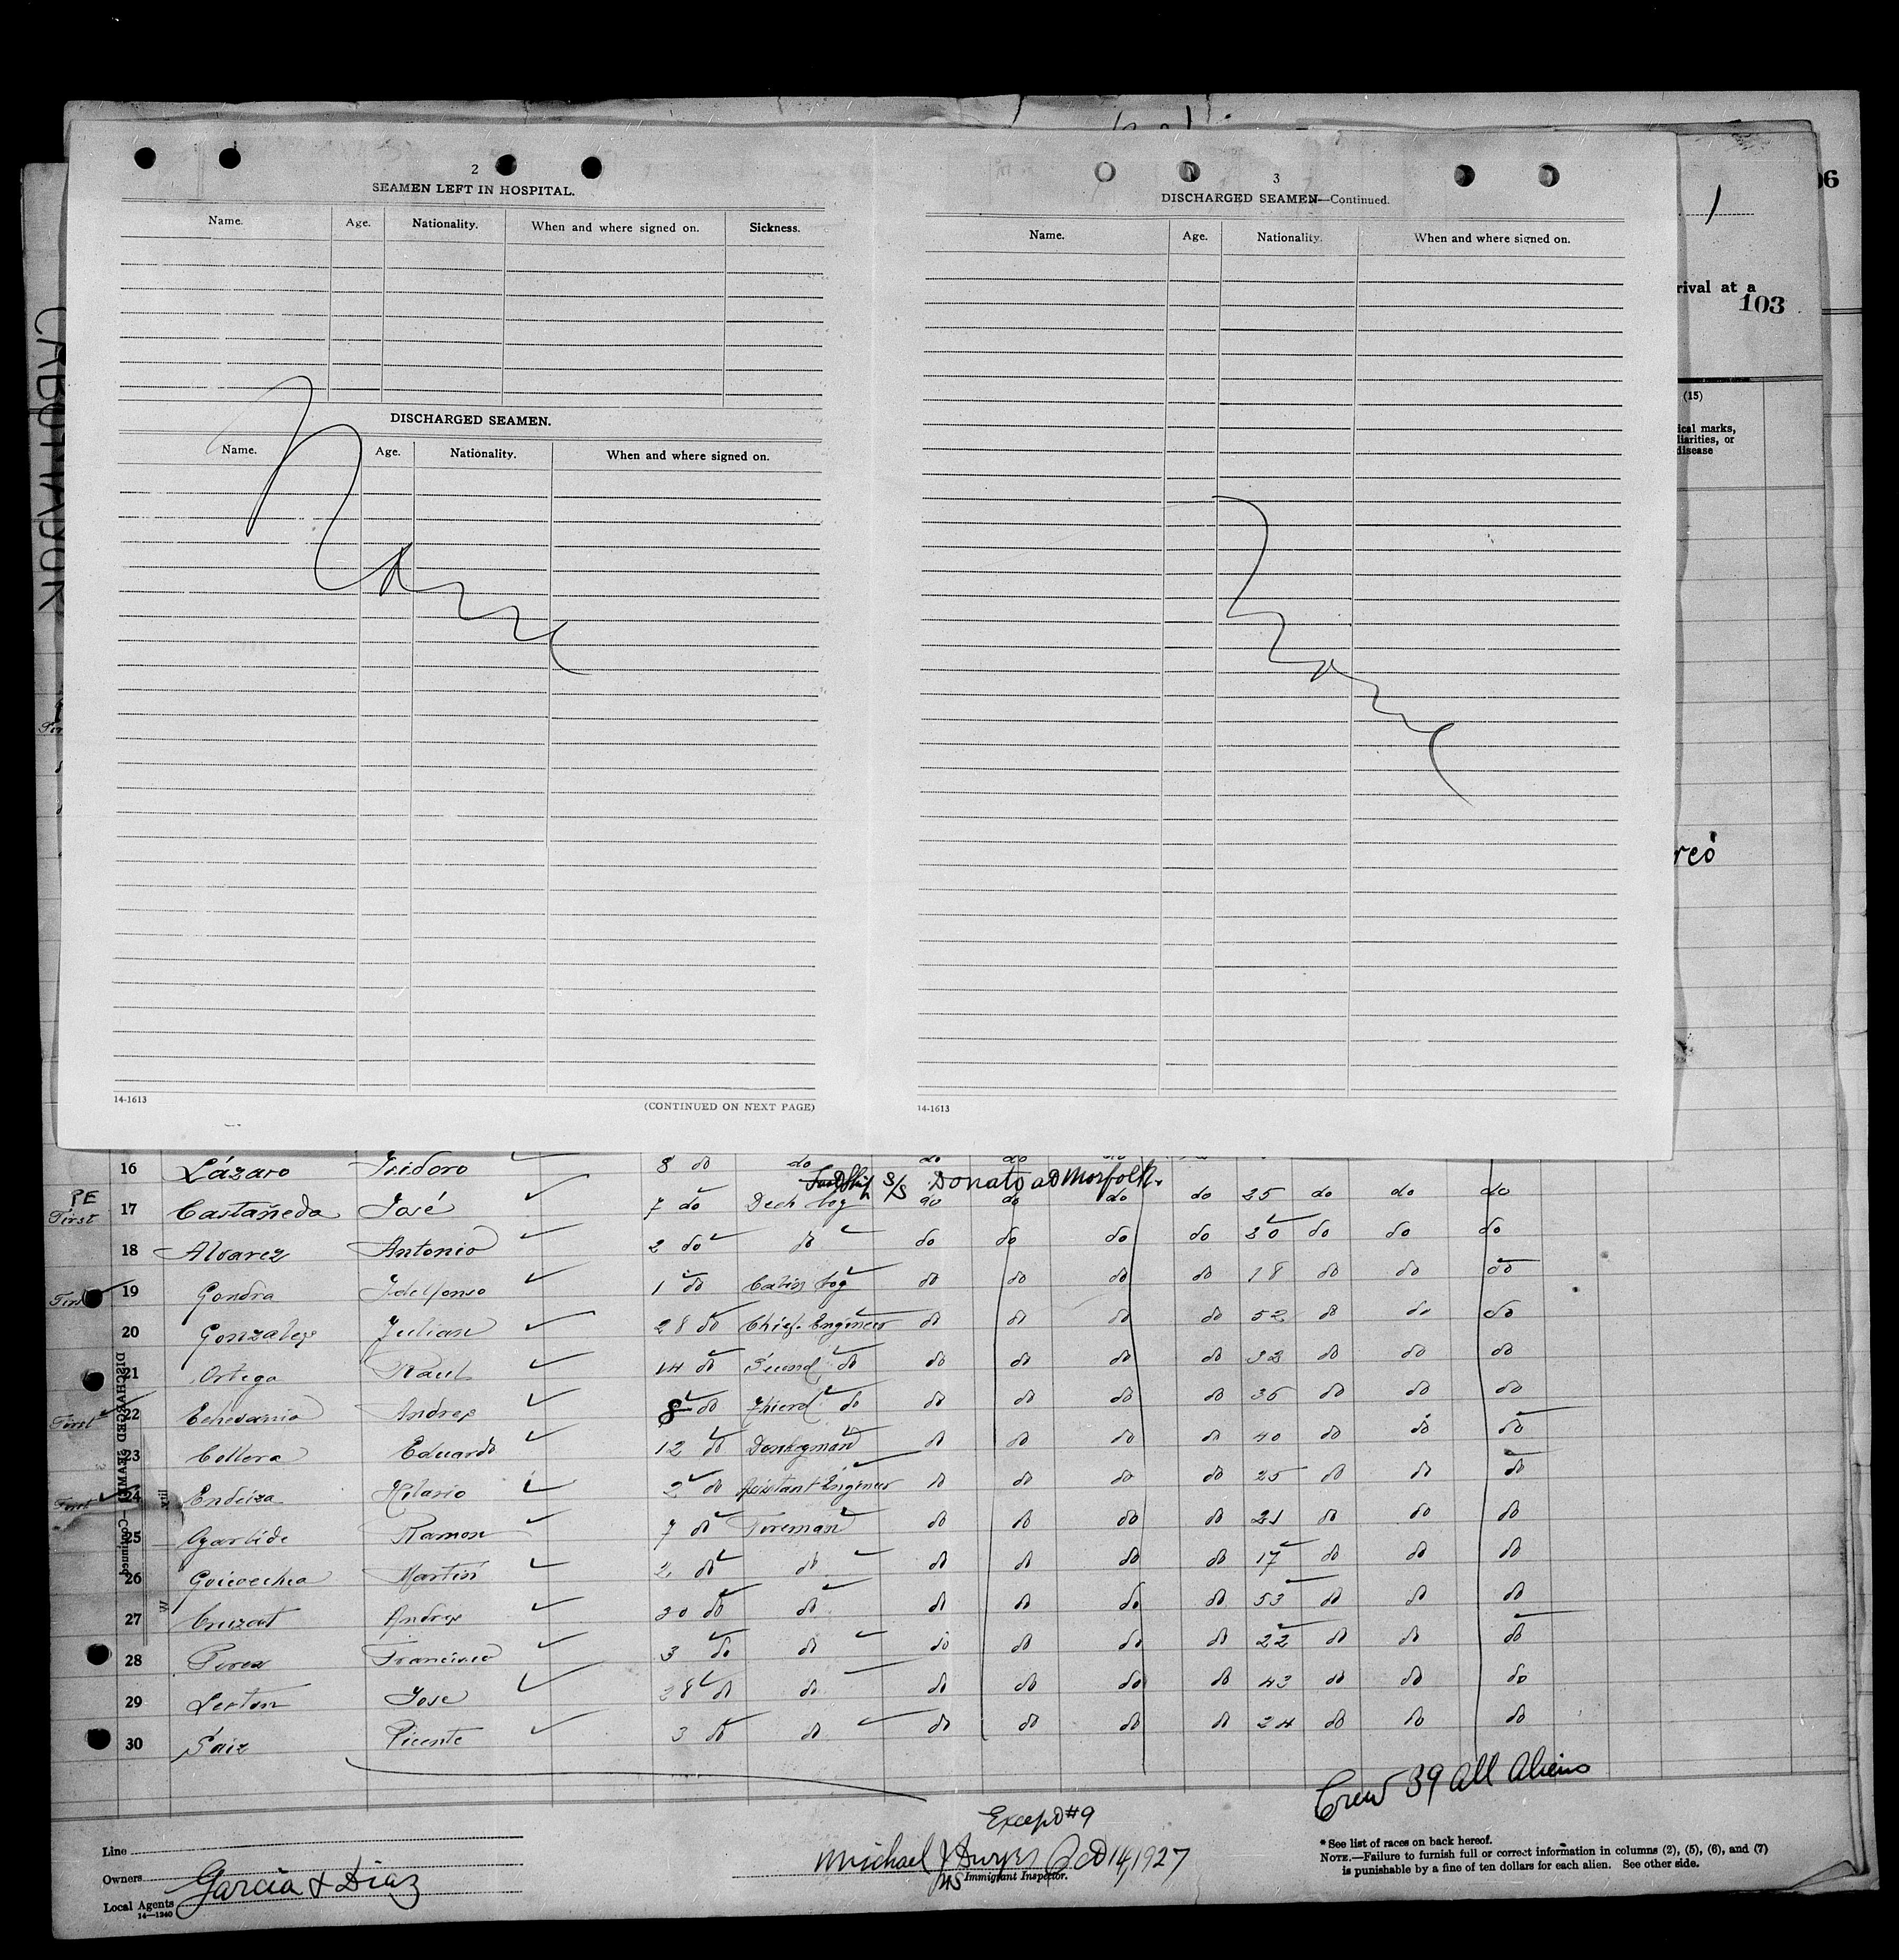 6
1
rival at a
103
CABO MAYOR
(15)
ical marks,
liarities, or
disease
reó
2
SEAMEN LEFT IN HOSPITAL.
Name. Age. Nationality. When and where signed on. Sickness.
DISCHARGED SEAMEN.
Name. Age. Nationality. When and where signed on.
None
14-1613 (CONTINUED ON NEXT PAGE)
3
DISCHARGED SEAMEN—Continued.
Name. Age. Nationality. When and where signed on.
None
14-1613
16 Lázaro Isidoro 8 do do do do do
S/S Donato at Norfolk.
PE
First 17 Castañeda José 7 do Deck boy do do do do 25 do do do
18 Alvarez Antonio 2 do do do do do do 30 do do do
First 19 Gondra Idelfonso 1 do Cabin boy do do do do 18 do do do
20 Gonzalez Julian 28 do Chief Engineer do do do do 52 do do do
21 Ortega Raul 14 do Second do do do do do 32 do do do
First 22 Echevarria Andres 8 do Thierd do do do do do 35 do do do
23 Collera Eduardo 12 do Donkeyman do do do do 40 do do do
First 24 Endeiza Hilario 2 do Asistant Engineer do do do do 25 do do do
25 Ramon 7 do Foreman do do do do 21 do do do
26 Goicoechea Martin 2 do do do do do do 17 do do do
27 Cruzat Andres 30 do do do do do do 53 do do do
28 Perez Francisco 3 do do do do do do 22 do do do
29 Lerton Jose 28 do do do do do do 43 do do do
30 Saiz Vicente 3 do do do do do do 24 do do do
DISCHARGED SEAMEN—Continued.
Crew 39 all Aliens
Except #9
Line
Owners
Local Agents Garcia & Diaz
14—1240
Michael J Dwyer Oct 14, 1927
US Immigrant Inspector.
* See list of races on back hereof.
NOTE.—Failure to furnish full or correct information in columns (2), (5), (6), and (7)
is punishable by a fine of ten dollars for each alien. See other side.